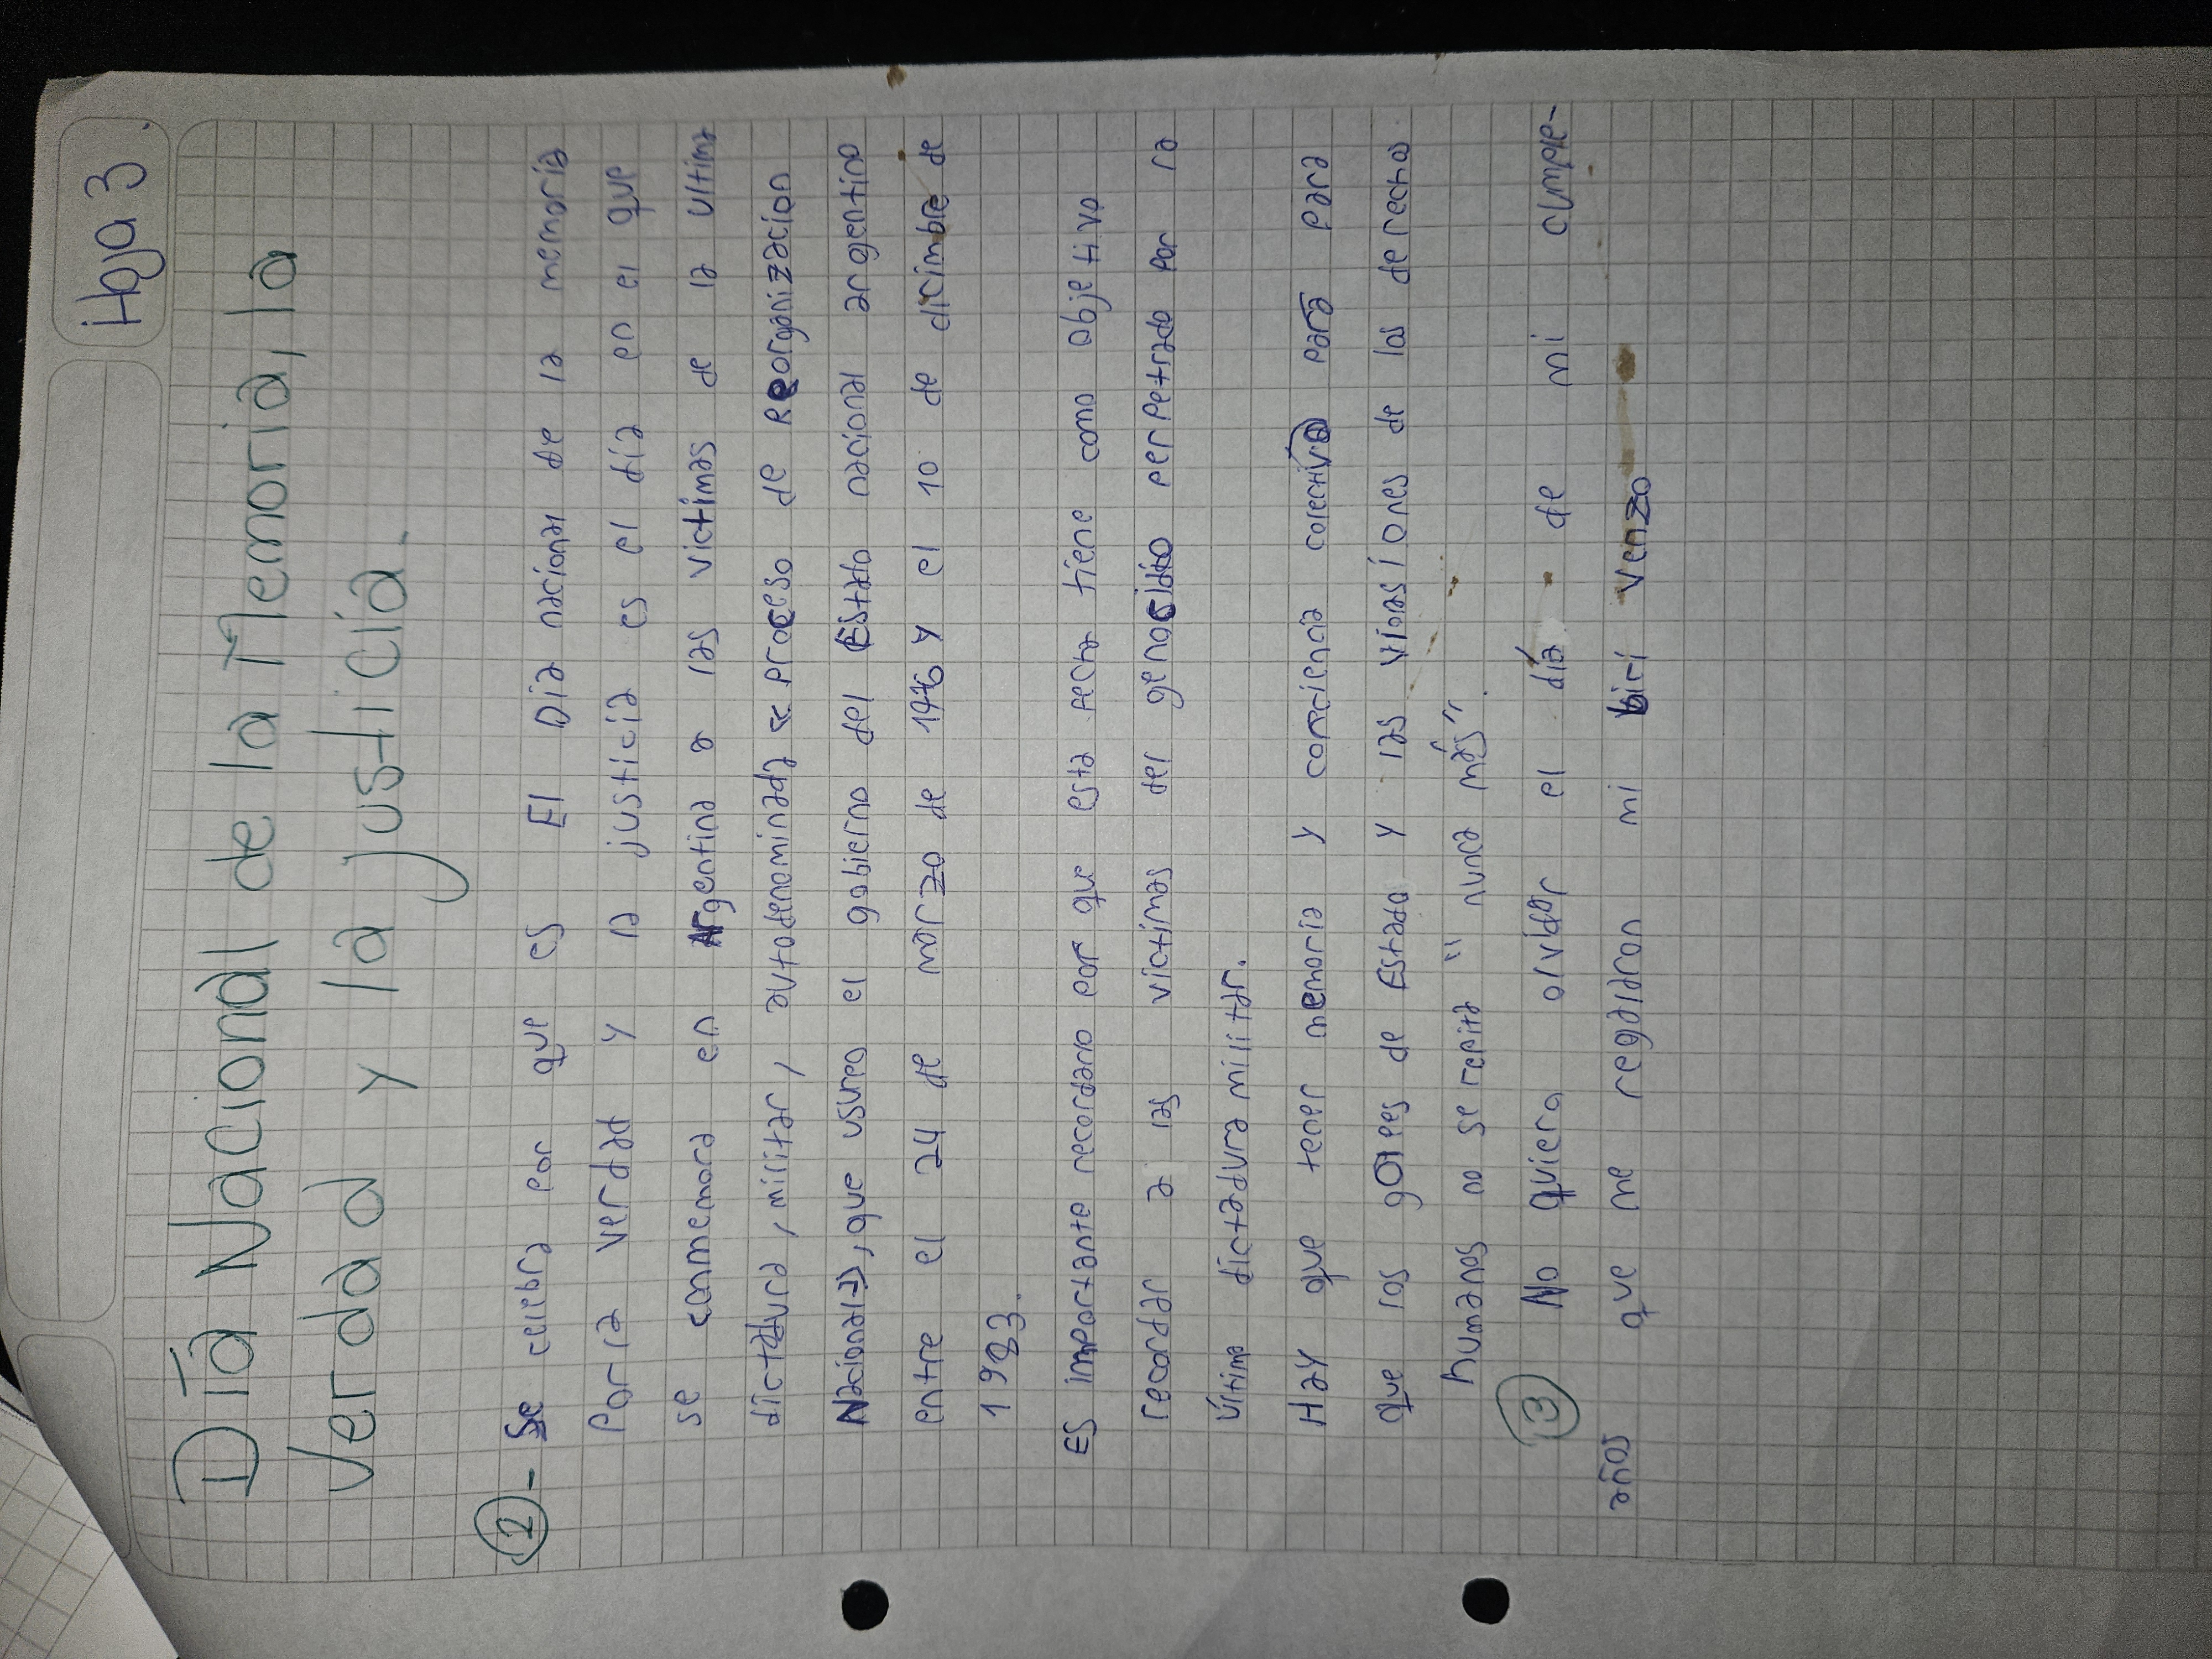 Hoja 3
Día Nacional de la Memoria, la
Verdad y la justicía.
2- Se celebra por que es El Día nacional de la memoria
Por la verdad y la justicia es el día en el que
se conmemora en Argentina a las victimas de la ultima
dictadura, militar, autodenominada « proceso de Reorganizacion
Nacional», que usureo el gobierno del Estado nacional argentino
entre el 24 de marzo de 1976 y el 10 de dicimbre de
1983.
Es importante recordarlo por que esta fecha tiene como objetivo
recordar a las victimas del genosidio perpetrado por la
última dictadura militar.
Hay que tener memoria y conciencia colectiva para para
que los golpes de Estado y las violasíones de los derechos
humanos no se repita " nunca más".
3 No quiero olvidar el día de mi cumple-
años que me regalaron mi biri Venzo